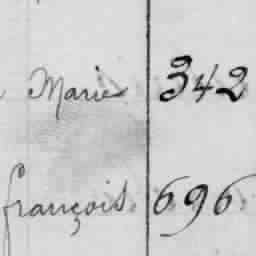 Marie 342
françois 696